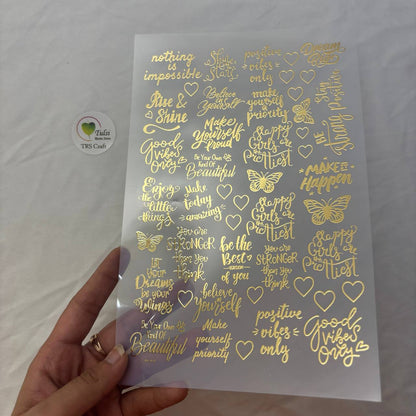 nothing is
impossible
Rise &
Shine
Good
vibes
Only
Enjoy
the
little
things
Let
your
Dreams
be your
Wings
Be Your Own
Kind Of
Beautiful
Believe
in
Yourself
Make
Yourself
Proud
Be Your Own
Kind Of
Beautiful
Make
today
amazing
You are
STRONGER
than you
think
believe in
Yourself
Make
yourself
priority
positive
vibes
only
make
yourself
priority
Happy
Girls are
the
Prettiest
be the
Best
of you
You are
STRONGER
than you
think
positive
vibes
only
Dream
Stay Positive
MAKE it
Happen
Happy
Girls are
the
Prettiest
Good
vibes
Only
TRS Craft